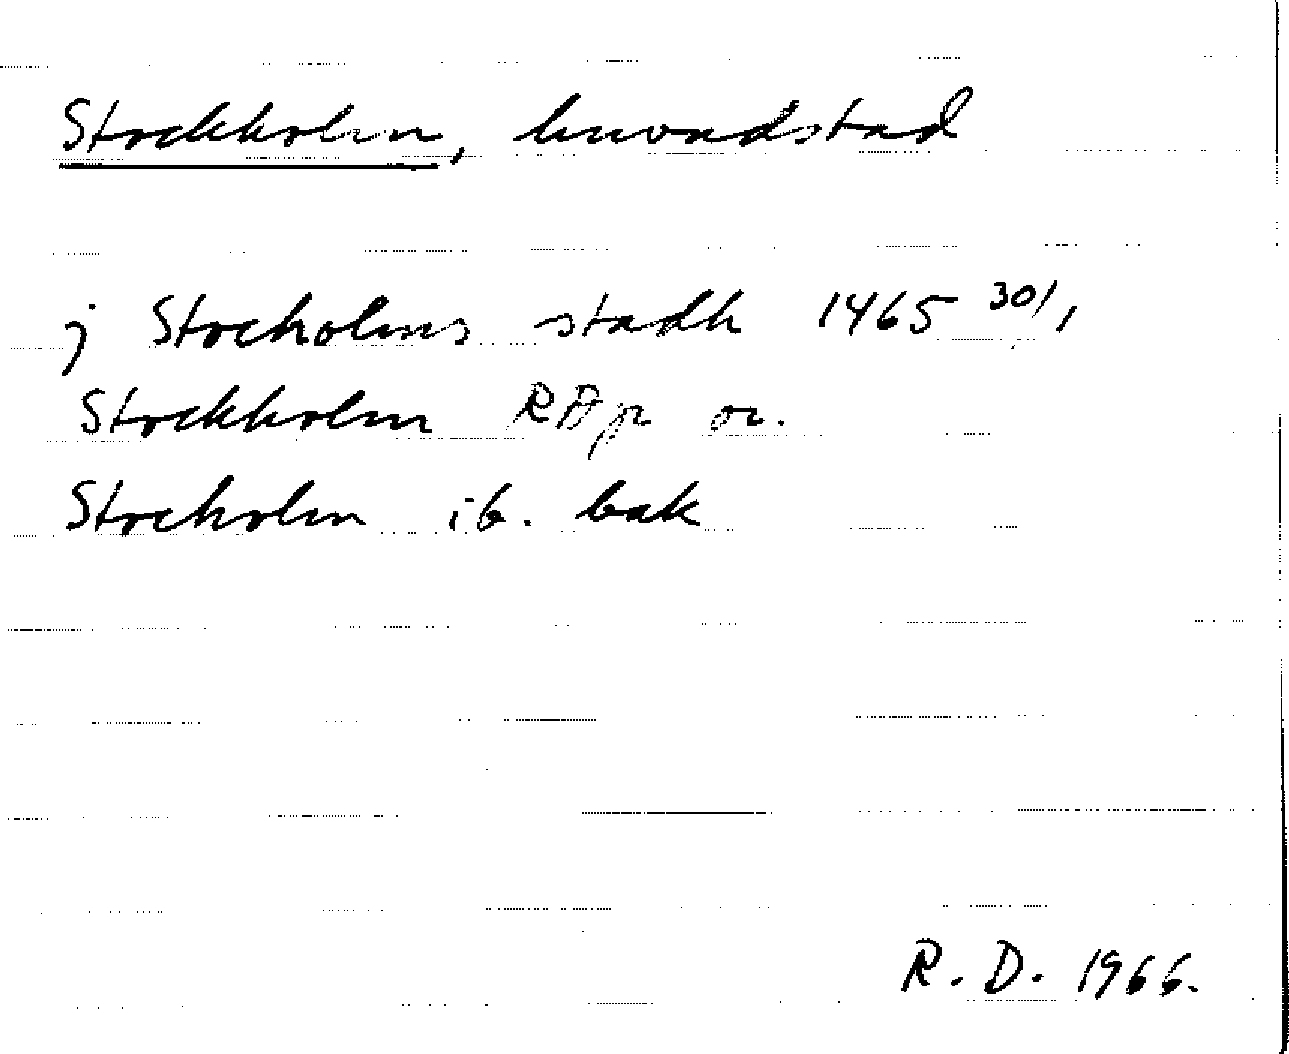 Stockholm, huvudstad
j Stocholms stadh 1465 30/1
Stockholm RAp or.
Stocholm ib. bak
R. D. 1966.